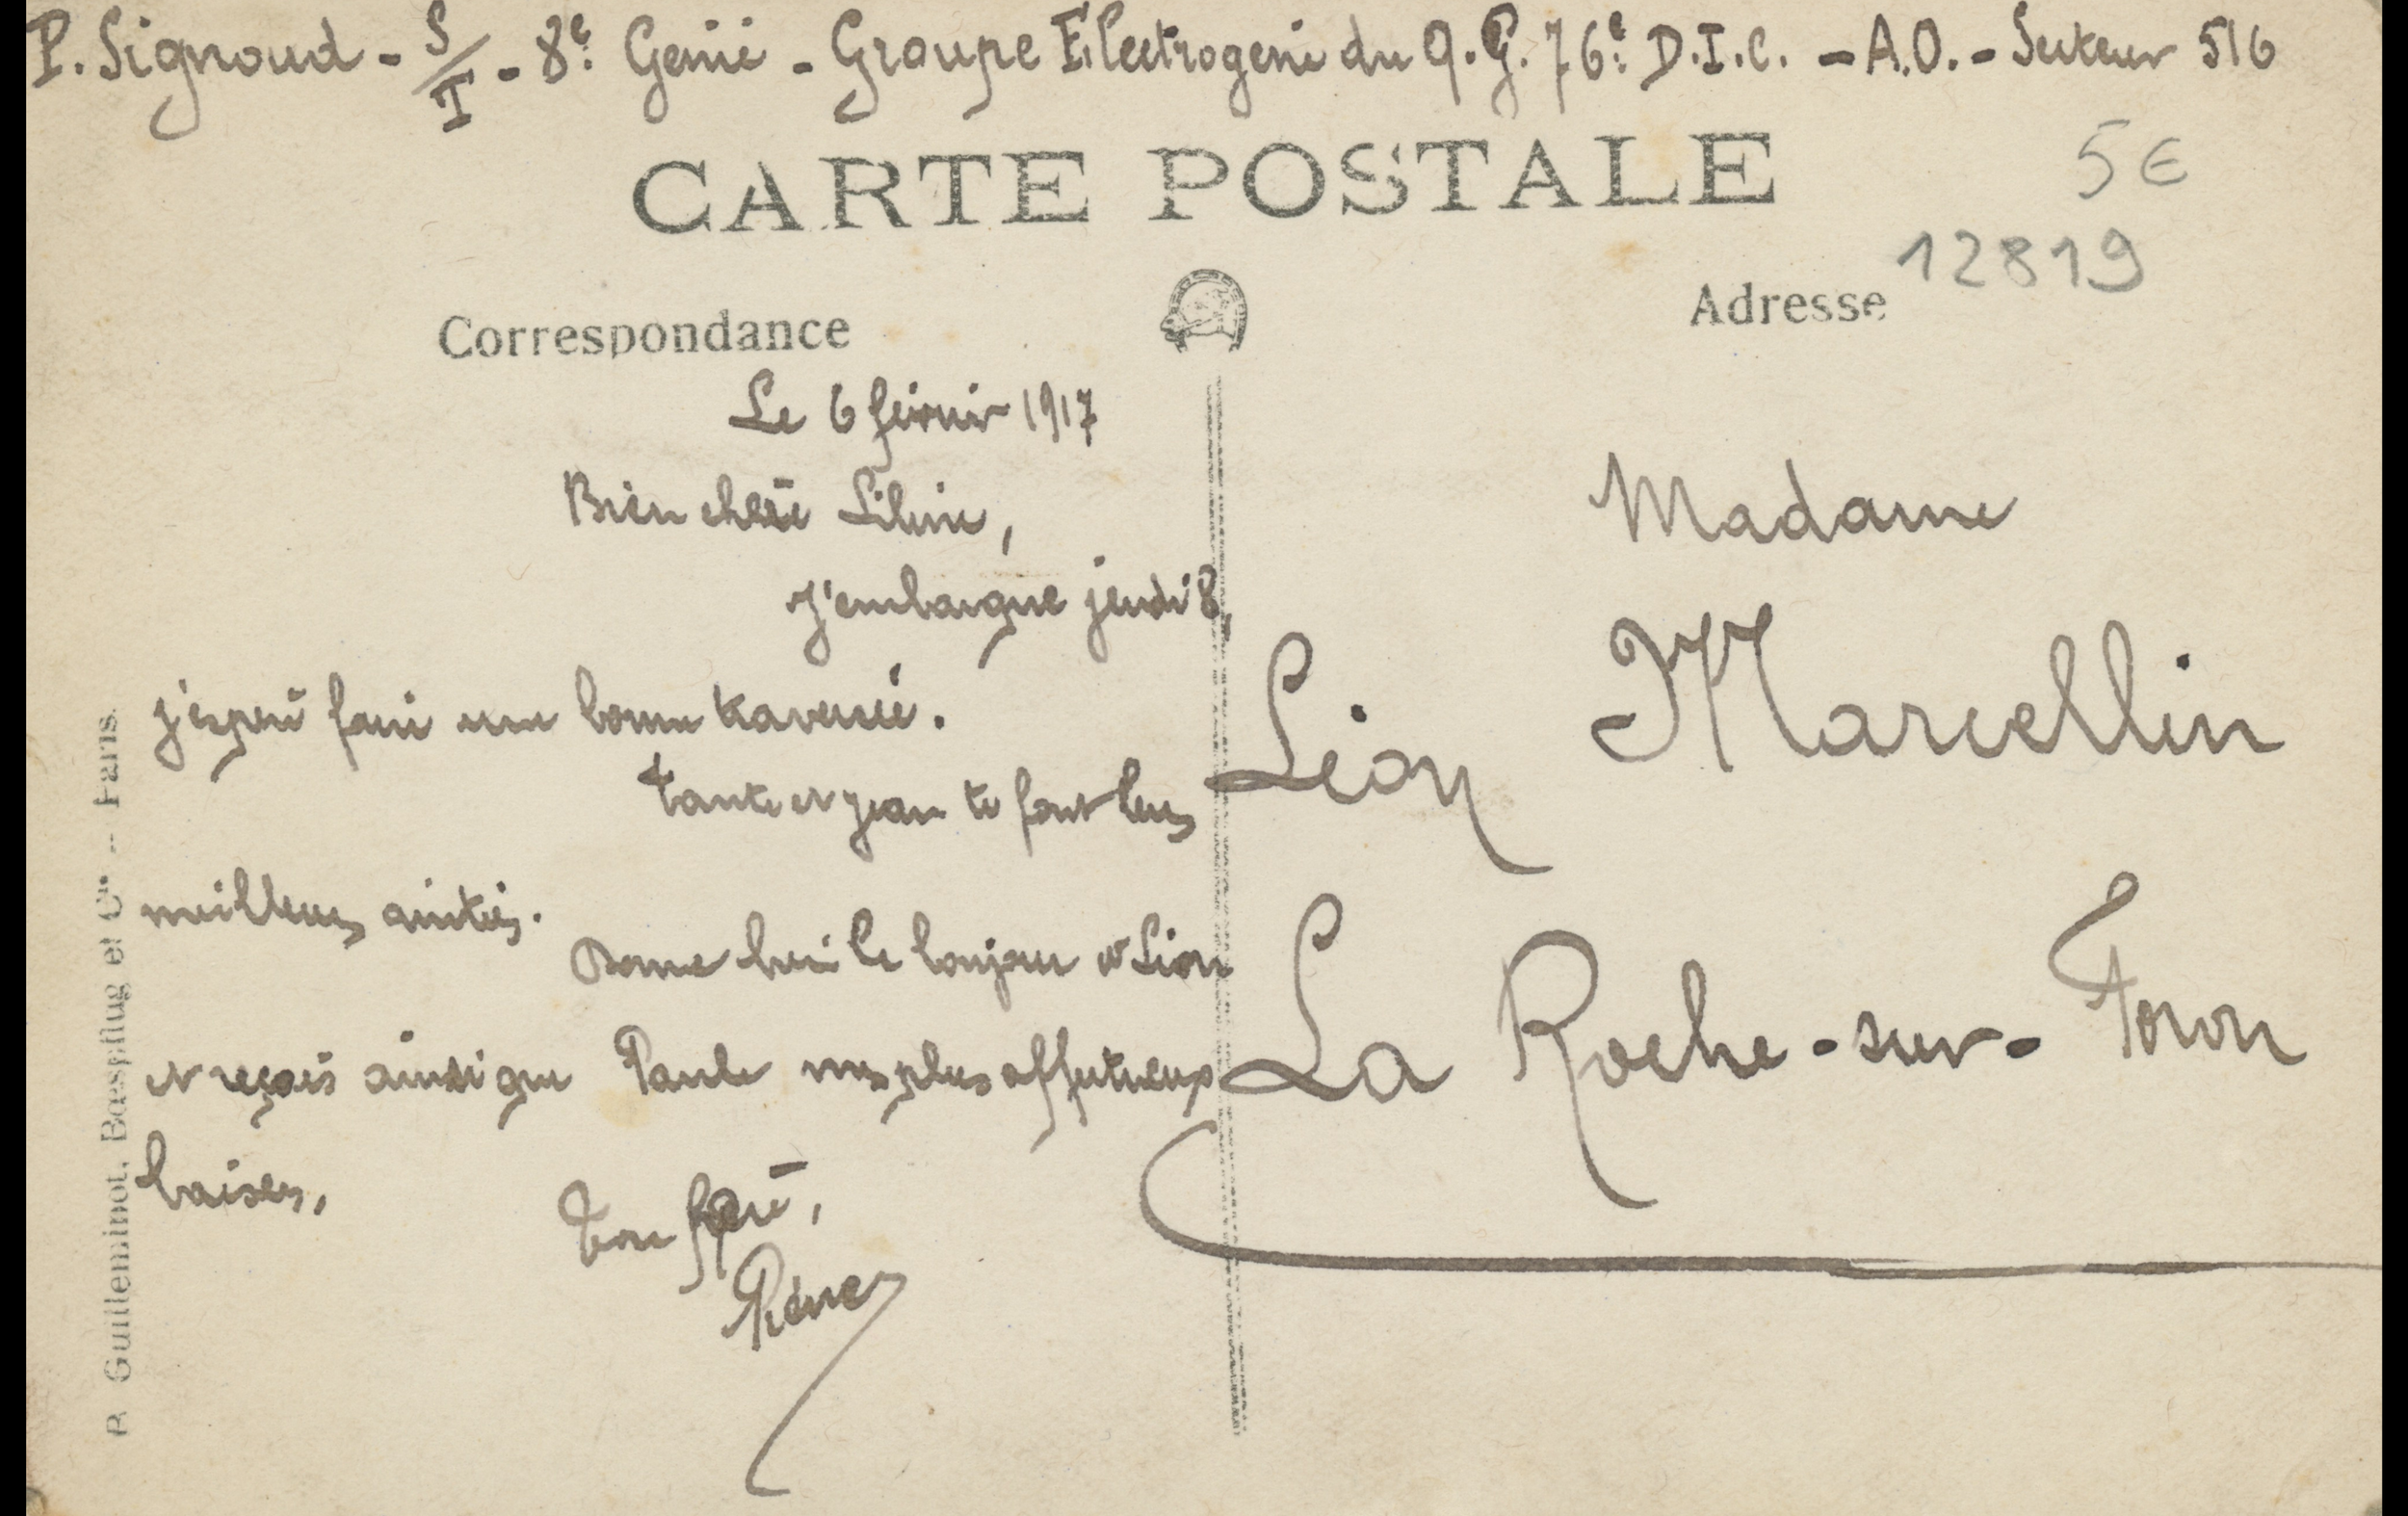 P. Signoud - S/T - 8e: Génie - Groupe Electrogène du Q.G. 76e: D.I.C. - A.O. - Secteur 516
CARTE POSTALE
5€
12819
Correspondance
Adresse
Le 6 février 1917
Bien chère Liline,
J'embarque jeudi 8,
j'espère faire une bonne traversée.
Tante et Jean te font leurs
meilleures amitiés.
Donne lui le bonjour à Léon
et reçois ainsi que Paule mes plus affectueux
baisers,
Ton frère,
Pierre
Madame
Léon Marcellin
La Roche-sur-Foron
R. Guilleminot, Bœspflug et Cie. -- Paris.